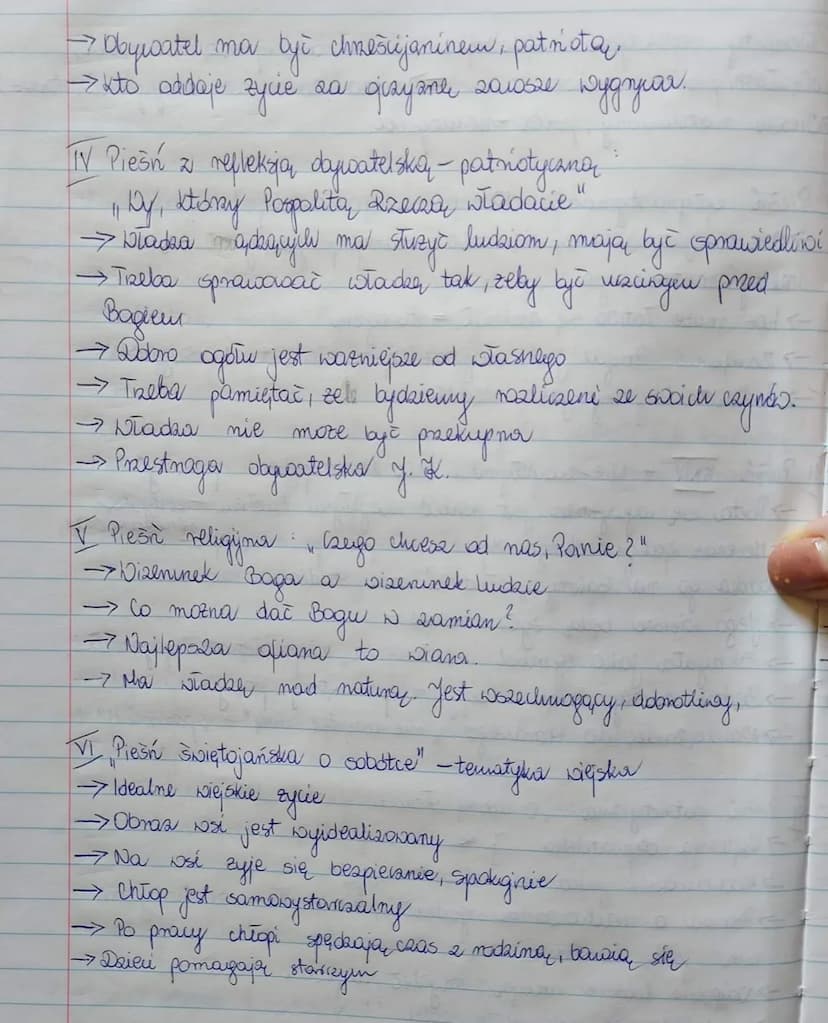 → Obywatel ma być chrześcijaninem, patriotą.
→ Kto oddaje życie za ojczyznę zawsze wygrywa.
IV Pieśń z refleksją obywatelską - patriotyczną :
„Wy, którzy Pospolitą Rzeczą władacie"
→ Władza rządzących ma służyć ludziom, mają być sprawiedliwi
→ Trzeba sprawować władzę tak, żeby być uczciwym przed
Bogiem
→ Dobro ogółu jest ważniejsze od własnego
→ Trzeba pamiętać, że będziemy rozliczeni ze swoich czynów.
→ Władza nie może być przekupna
→ Przestroga obywatelska J. K.
V Pieśń religijna : „Czego chcesz od nas, Panie?"
→ Wizerunek Boga a wizerunek ludzie
→ Co można dać Bogu w zamian?
→ Najlepsza ofiara to wiara.
→ Ma władzę nad naturą. Jest wszechmogący, dobrotliwy,
VI „Pieśń świętojańska o sobótce" - tematyka wiejska
→ Idealne wiejskie życie
→ Obraz wsi jest wyidealizowany
→ Na wsi żyje się bezpiecznie, spokojnie
→ Chłop jest samowystarczalny
→ Po pracy chłopi spędzają czas z rodziną, bawią się
→ Dzieci pomagają starszym